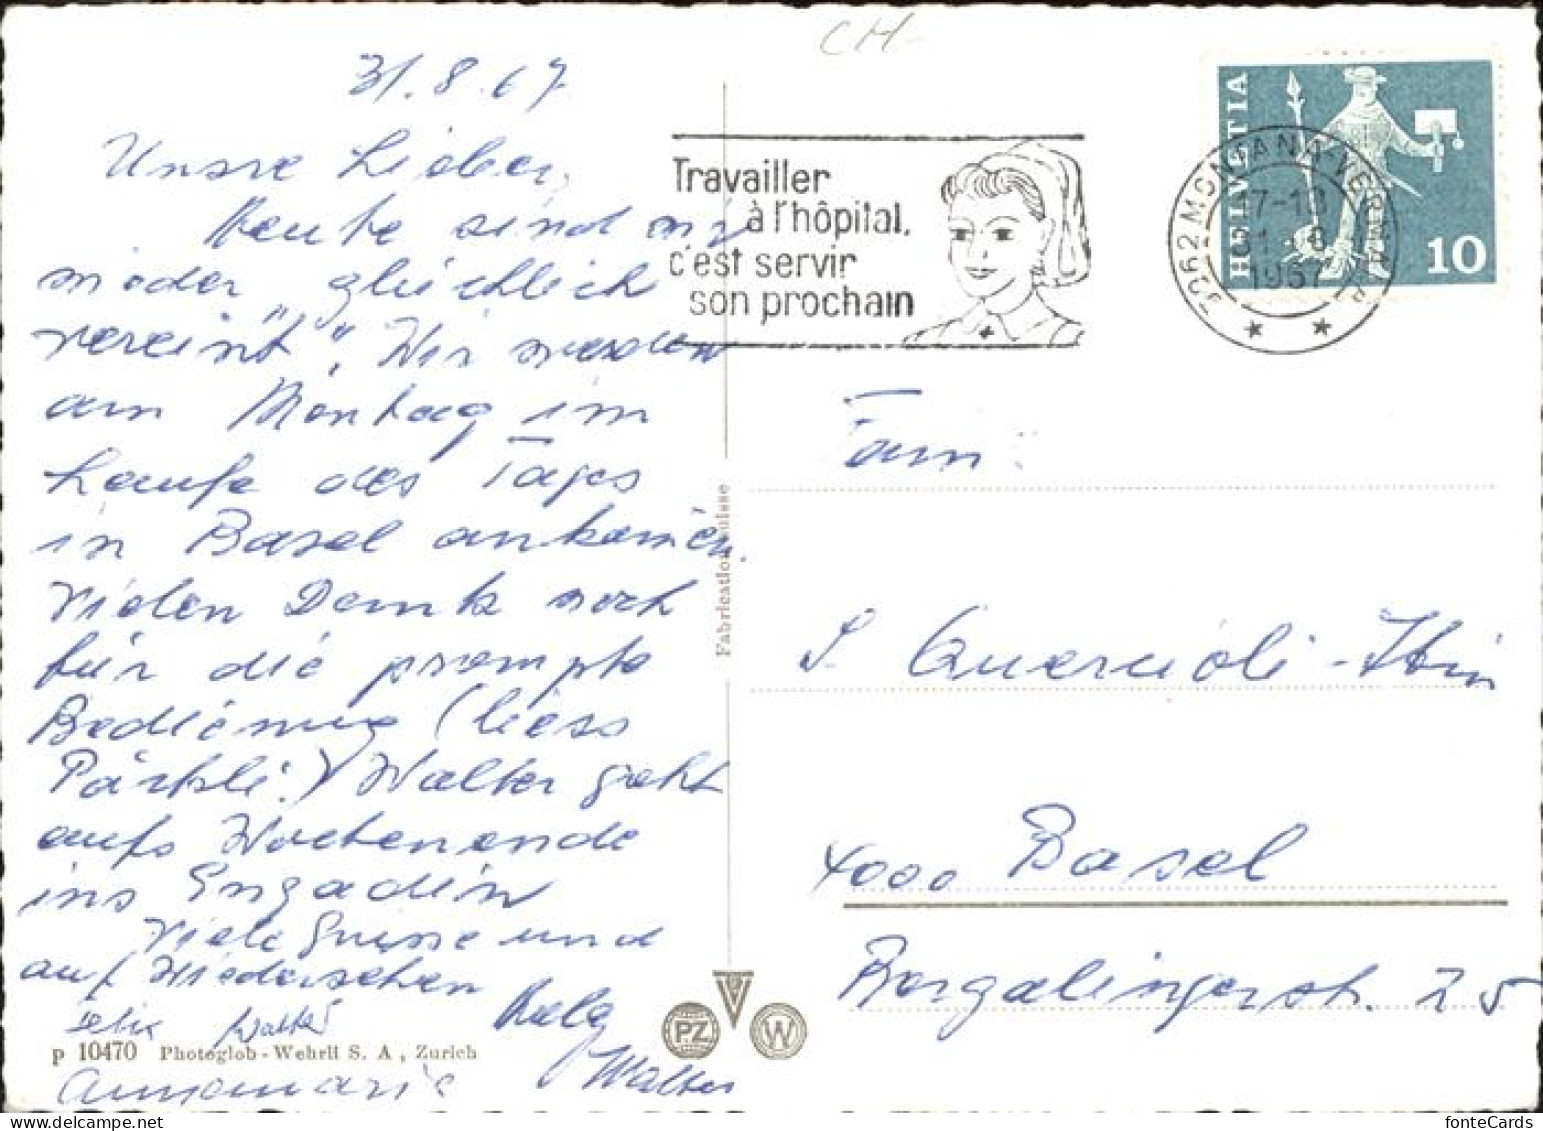 CH
31.8.67
Unsre Lieben,
Heute sind wir
wieder "glücklich
vereint". Wir werden
am Montag im
Laufe des Tages
in Basel ankommen.
Vielen Dank noch
für die prompte
Bedienung (liess
Päckli!) Walter geht
aufs Wochenende
ins Engadin
Viele Grüsse und
auf Wiedersehen
Walter
Walter
Annemarie
P 10470 Photoglob-Wehrli S. A., Zurich
Fabrication suisse
PZ
W
Travailler
à l'hôpital,
c'est servir
son prochain
3962 MONTANA-VERMALA
17-18
31. 8.
1967
HELVETIA
10
Fam.
4000 Basel